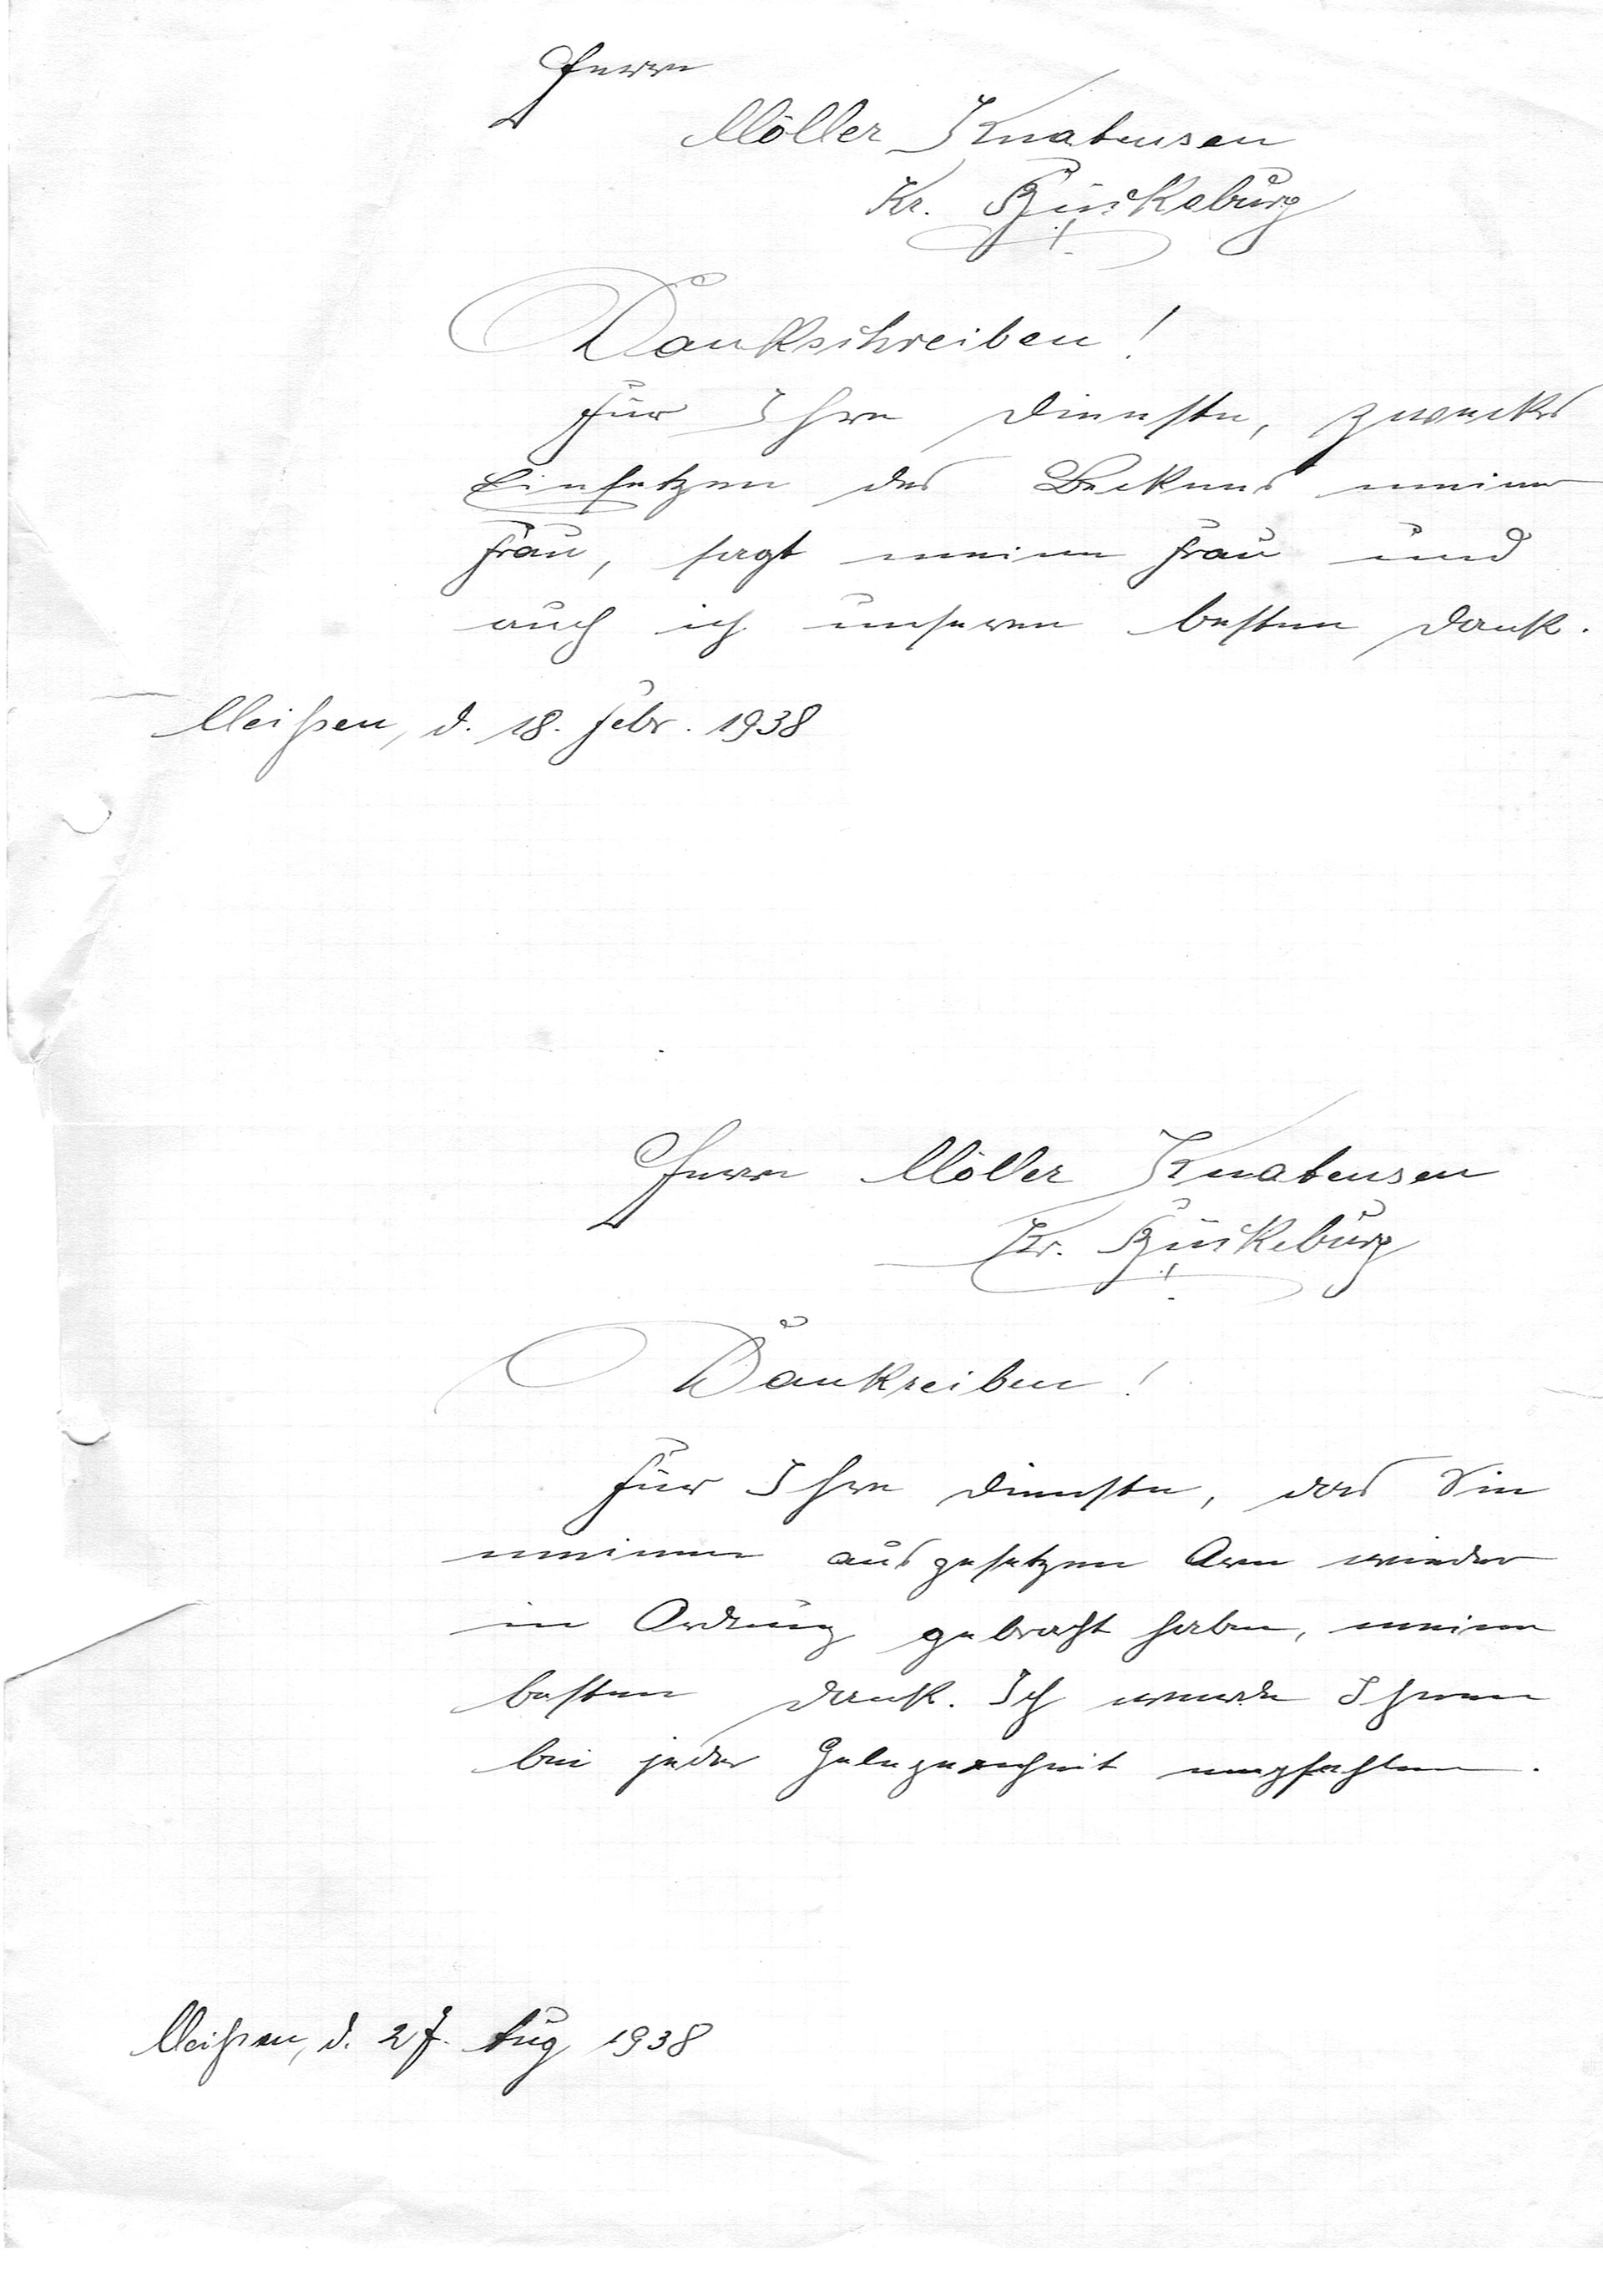 Herrn
Möller Knatensen
Kr. Bückeburg
Dankschreiben!
Für Ihre Dienste, zwecks
Einsetzen des Beckens meiner
Frau, sagt meine Frau und
auch ich unseren besten Dank.
Meißen, d. 18. Febr. 1938
Herrn Möller Knatensen
Kr. Bückeburg
Dankreiben!
Für Ihre Dienste, das Sie
meinen ausgesetzen Arm wieder
in Ordnung gebracht haben, meinen
besten Dank. Ich werde Ihnen
bei jeder Gelegenheit empfehlen.
Meißen, d. 27. Aug 1938